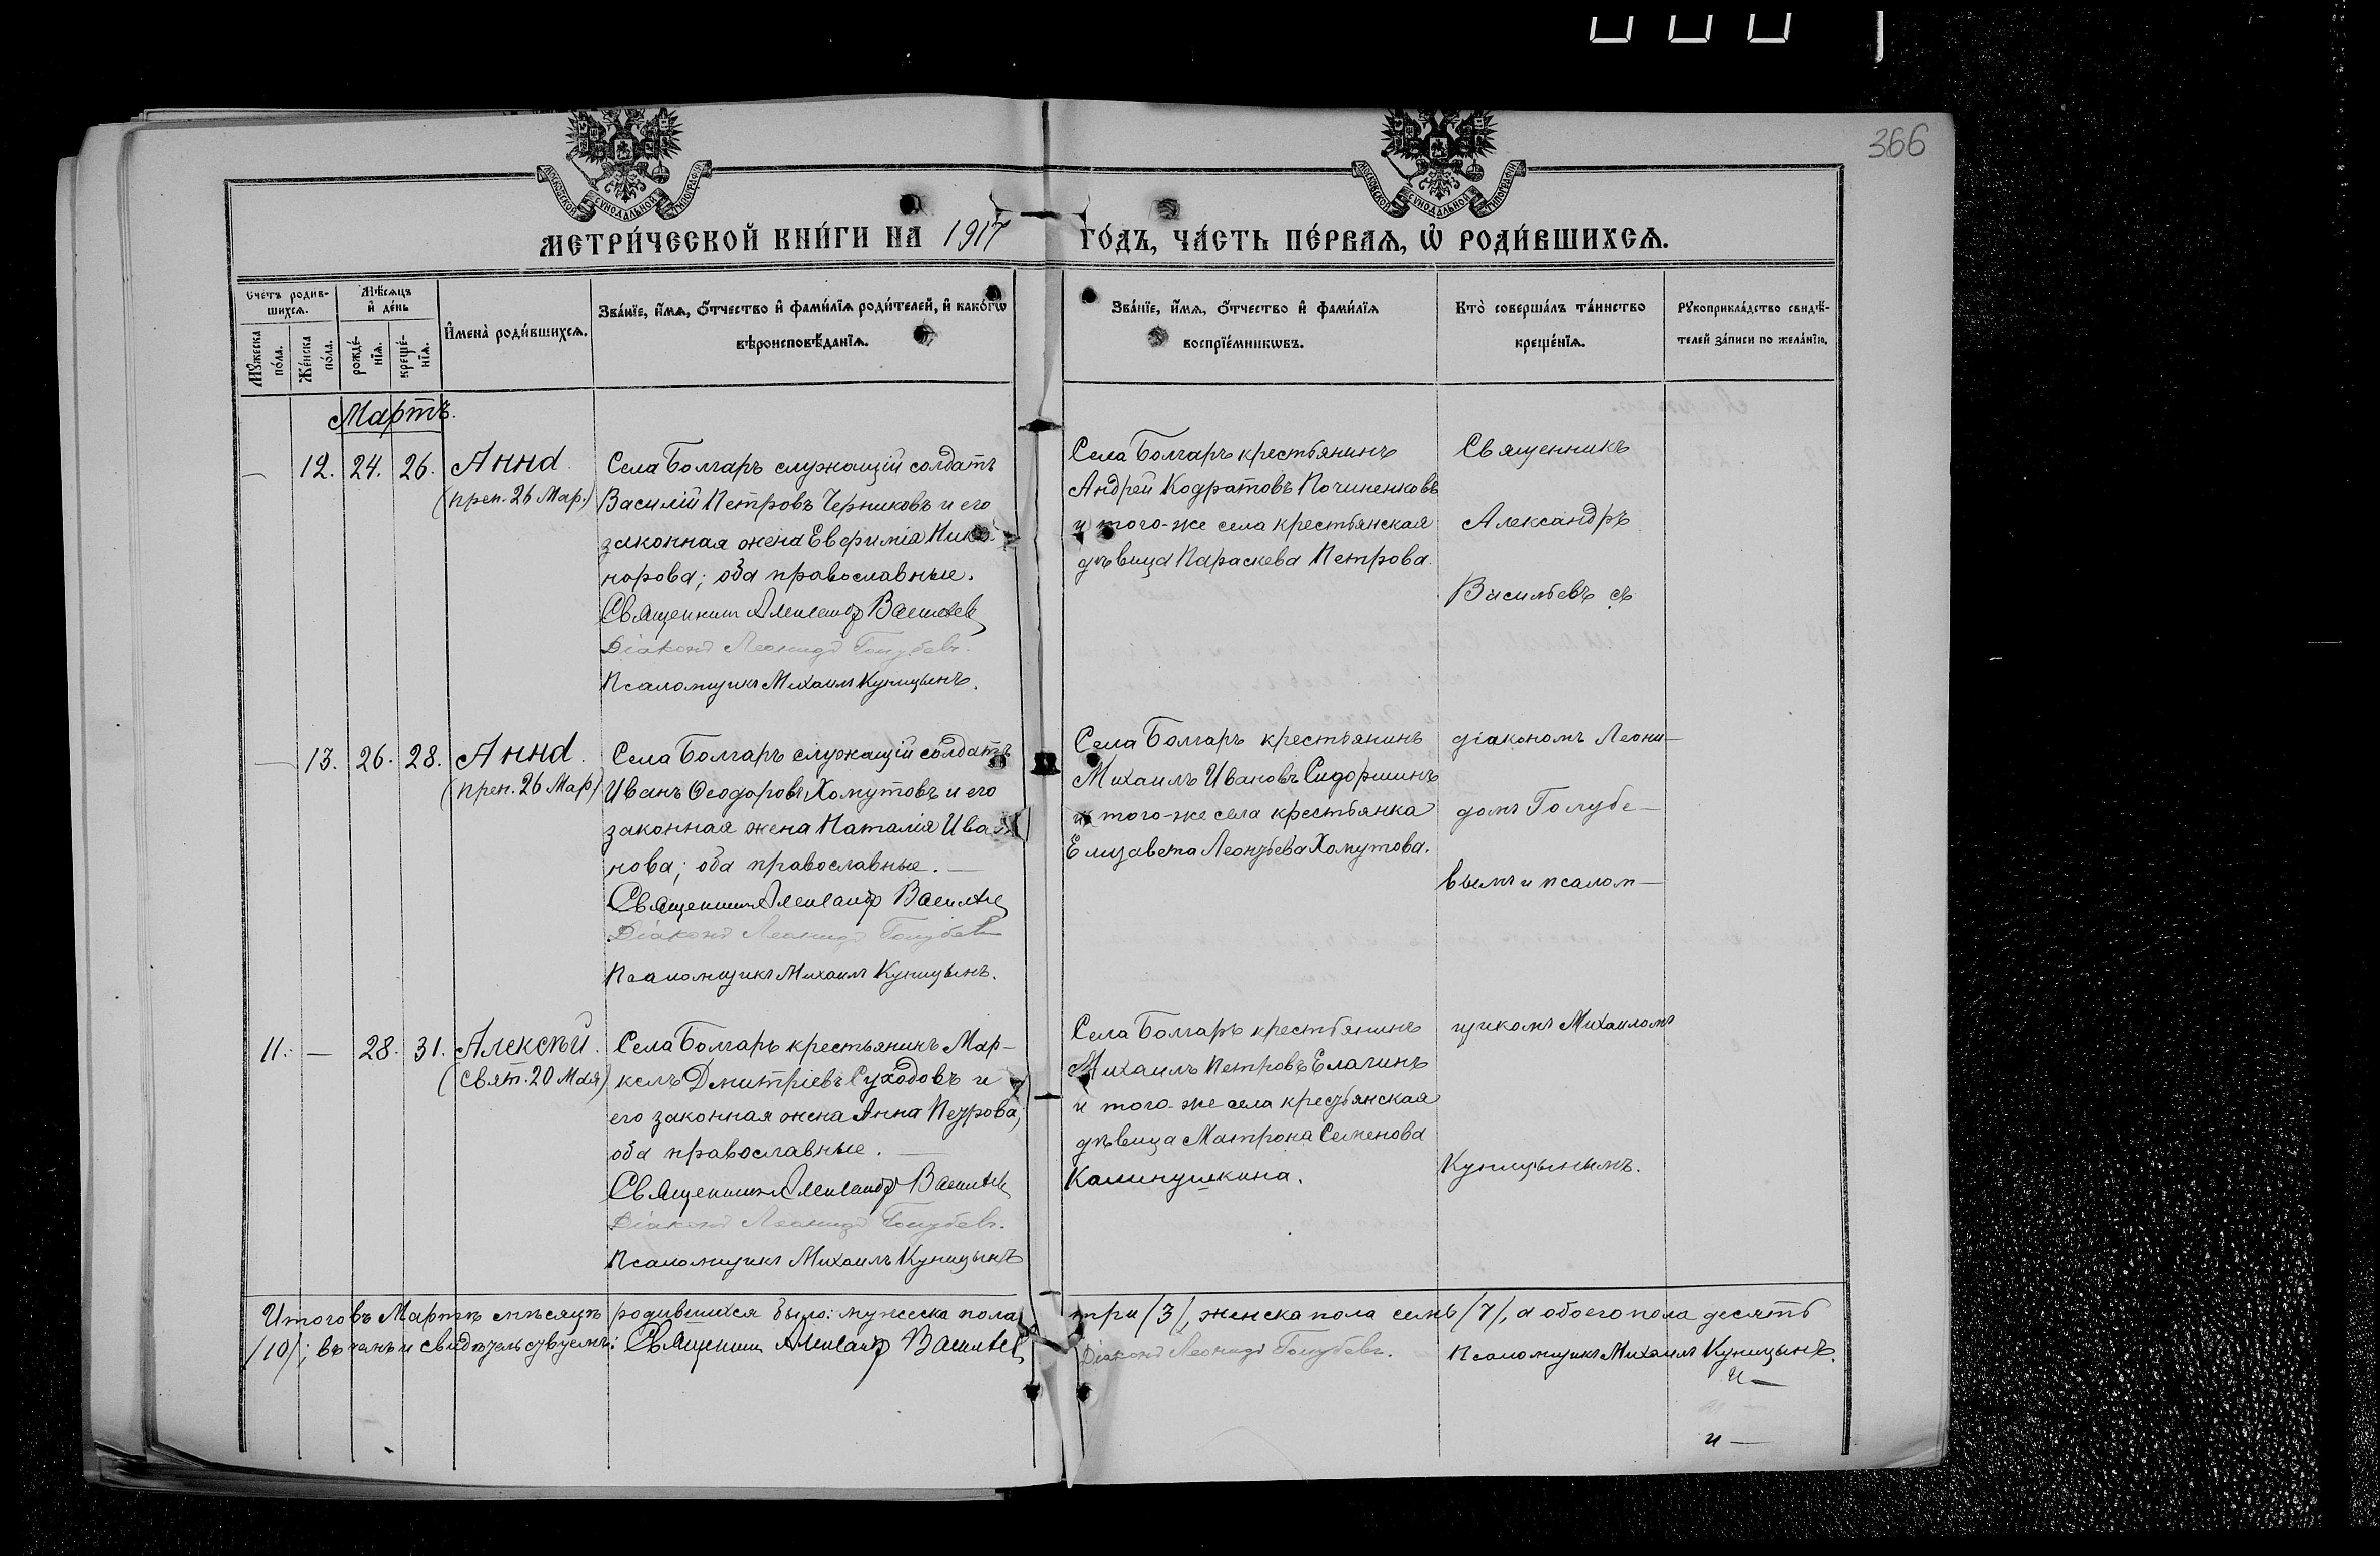 366
МОСКОВСКОЙ СѴНОДАЛЬНОЙ ТИПОГРАФІИ
МОСКОВСКОЙ СѴНОДАЛЬНОЙ ТИПОГРАФІИ
МЕТРИ́ЧЕСКОЙ КНИ́ГИ НА 1917 ГО́ДЪ, ЧА́СТЬ ПЕ́РВАѦ, Ѽ РОДИ́ВШИХСѦ.
Счетъ родив-
шихсѧ.
Мѣ́сѧцъ
и де́нь
Мꙋжеска
по́ла.
Же́нска
по́ла.
рожде́-
нїѧ.
креще́-
нїѧ.
Имена̀ роди́вшихсѧ.
Зва́нїе, и́мѧ, ѻ҆́тчество и фами́лїѧ роди́телей, и како́гѡ
вѣроисповѣ́данїѧ.
Зва́нїе, и́мѧ, ѻ҆́тчество и фами́лїѧ
воспрїе́мникѡвъ.
Кто̀ соверша́лъ та́инство
креще́нїѧ.
Рꙋкоприкла́дство свидѣ́-
телей за́писи по жела́нїю.
Мартъ.
— 12. 24. 26. Анна.
(преп. 26 Мар.)
Села Болгаръ служащій солдатъ
Василій Петровъ Черниковъ и его
законная жена Евфимія Ника-
норова; оба православные.
Священникъ Александръ Васильевъ
Діаконъ Леонидъ Голубевъ.
Псаломщикъ Михаилъ Куницынъ.
Села Болгаръ крестьянинъ
Андрей Кодратовъ Починенковъ
и того-же села крестьянская
дѣвица Параскева Петрова.
Священникъ
Александръ
Васильевъ съ
— 13. 26. 28. Анна.
(преп. 26 Мар.)
Села Болгаръ служащій солдатъ
Иванъ Ѳеодоровъ Хомутовъ и его
законная жена Наталія Ива-
нова; оба православные. —
Священникъ Александръ Васильевъ
Діаконъ Леонидъ Голубевъ
Псаломщикъ Михаилъ Куницынъ.
Села Болгаръ крестьянинъ
Михаилъ Ивановъ Сидоршинъ
и того-же села крестьянка
Елизавета Леонтьева Хомутова.
діакономъ Леони-
домъ Голубе-
вымъ и псалом-
11. — 28. 31. Алексѣй.
(свят. 20 Мая)
Села Болгаръ крестьянинъ Мар-
келъ Дмитріевъ Суходовъ и
его законная жена Анна Петрова;
оба православные. —
Священникъ Александръ Васильевъ
Діаконъ Леонидъ Голубевъ.
Псаломщикъ Михаилъ Куницынъ
Села Болгаръ крестьянинъ
Михаилъ Петровъ Елагинъ
и того-же села крестьянская
дѣвица Матрона Семенова
Калинушкина.
щикомъ Михаиломъ
Куницынымъ.
Итого въ Мартѣ мѣсяцѣ родившихся было: мужеска пола три /3/, женска пола семь /7/, а обоего пола десять
/10/; въ чемъ и свидѣтельствуемъ: Священникъ Александръ Васильевъ Діаконъ Леонидъ Голубевъ. Псаломщикъ Михаилъ Куницынъ.
и —
и —